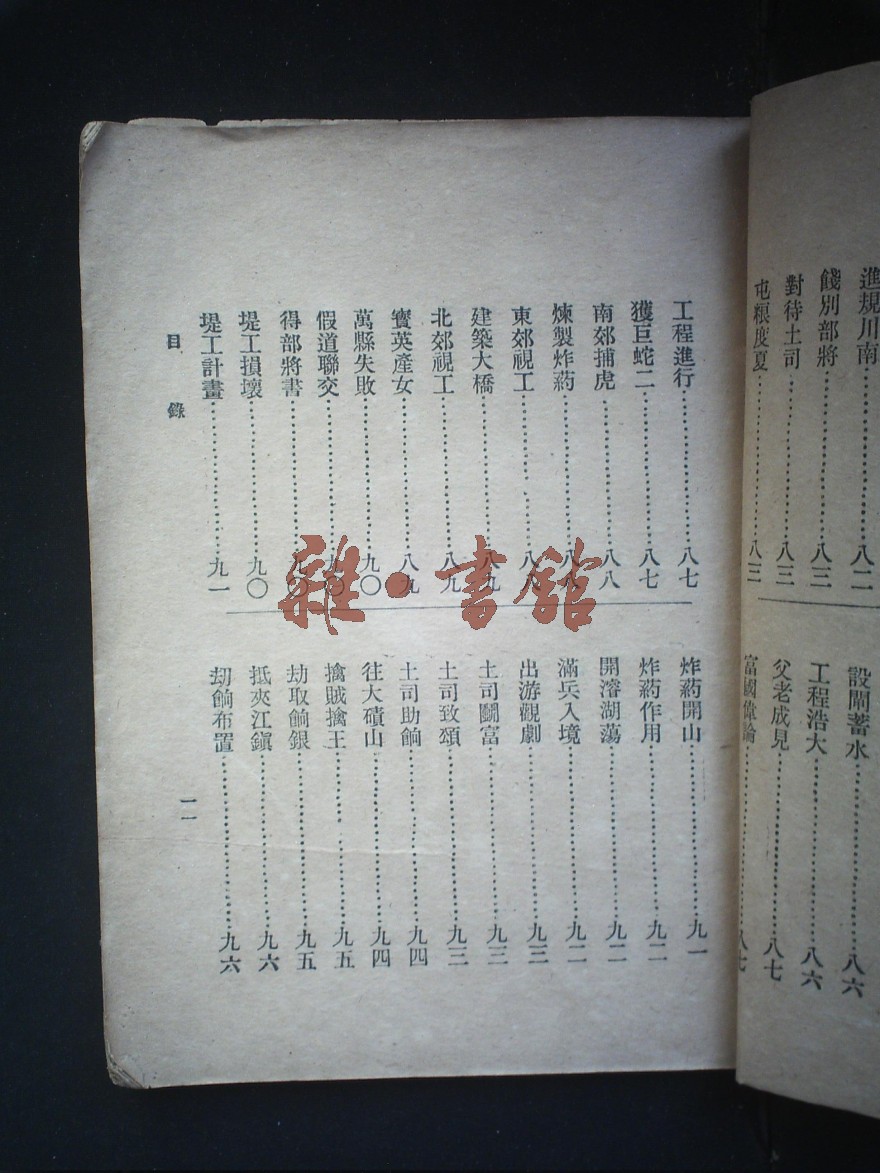 進規川南……八二
餞別部將……八三
對待土司……八三
屯糧度夏……八三
設閘蓄水……八六
工程浩大……八六
父老成見……八七
富國偉論……八七
工程進行……八七
獲巨蛇二……八七
南郊捕虎……八八
煉製炸药……八八
東郊視工……八八
建築大橋……八九
北郊視工……八九
寶英產女……八九
萬縣失敗……九〇
假道聯交……九〇
得部將書……九〇
堤工損壞……九〇
堤工計畫……九一
炸药開山……九一
炸药作用……九二
開濬湖蕩……九二
滿兵入境……九二
出游觀劇……九三
土司鬭富……九三
土司致頌……九三
土司助餉……九四
往大磧山……九四
擒賊擒王……九五
劫取餉銀……九五
抵夾江鎭……九六
劫餉布置……九六
目錄
一一
雜·書館